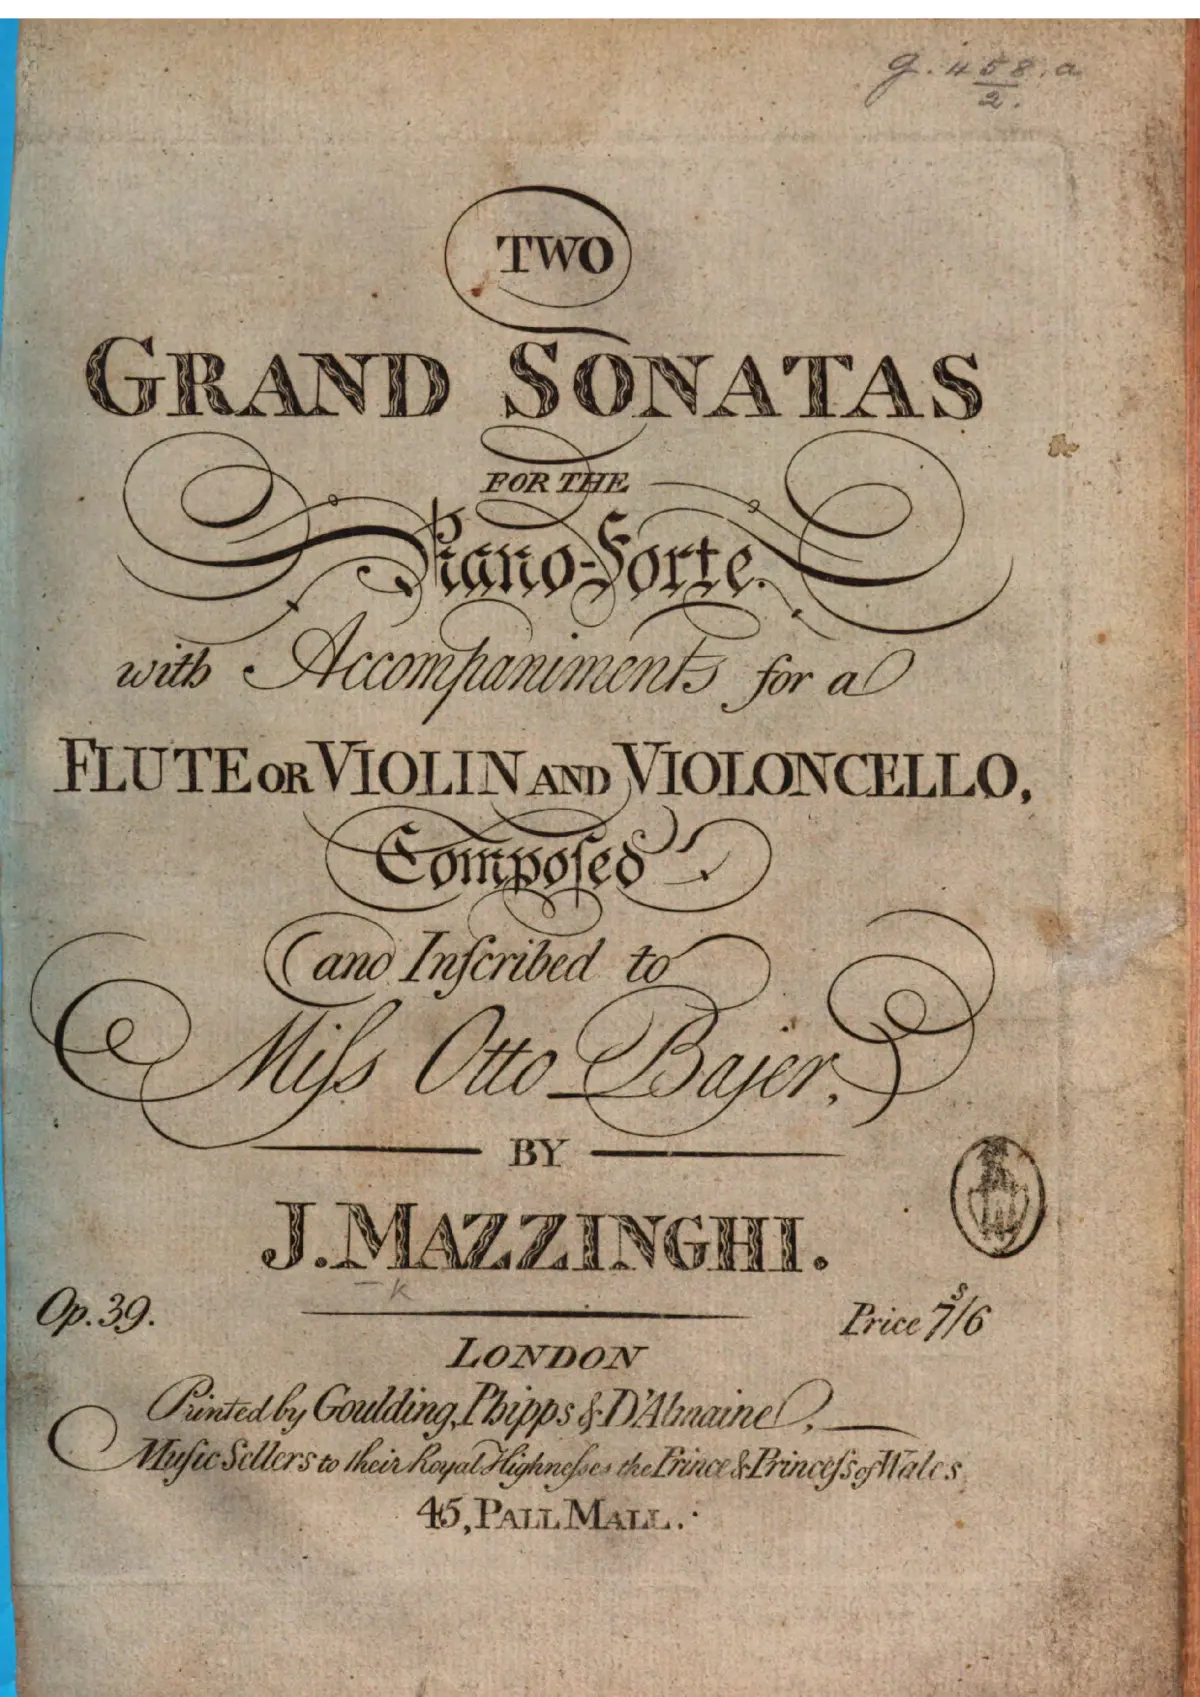 g. 458. a
2.
TWO
GRAND SONATAS
FOR THE
Piano-Forte.
with Accompaniments for a
FLUTE OR VIOLIN AND VIOLONCELLO,
Compoſed
and Inſcribed to
Miſs Otto Bajer,
BY
J. MAZZINGHI.
k
Op. 39. Price 7ˢ/6
LONDON
Printed by Goulding, Phipps & D'Almaine,
Muſic Sellers to their Royal Highneſses the Prince & Princeſs of Wales
45, PALL MALL.